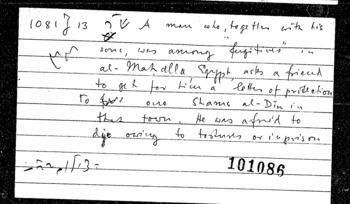 1081 J 13 A man who, together with his
sons, was among "fugitives" in
al-Mahalla Egypt asks a friend
to get for him a letter of protection
To one Shams al-Din in
that town. He was afraid to
die owing to tortures or in prison
101086